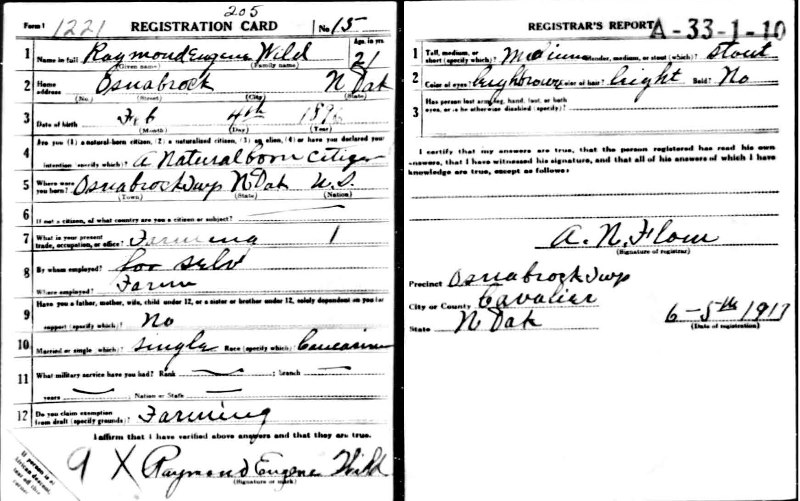 205
Form 1 1221 REGISTRATION CARD No 15
1 Name in full Raymond Eugene Wild Age, in yrs. 21
(Given name) (Family name)
2 Home address Osnabrock N Dak
(No.) (Street) (City) (State)
3 Date of birth Feb 4th
(Month) (Day) (Year)
4 Are you (1) a natural-born citizen, (2) a naturalized citizen, (3) an alien, (4) or have you declared your
intention (specify which)? A Natural born Citizen
5 Where were you born? Osnabrock Twp N Dak U.S.
(Town) (State) (Nation)
6 If not a citizen, of what country are you a citizen or subject?
7 What is your present trade, occupation, or office? Farming 1
8 By whom employed? for self
Where employed? Farm
9 Have you a father, mother, wife, child under 12, or a sister or brother under 12, solely dependent on you for
support (specify which)? No
10 Married or single (which)? Single Race (specify which)? Caucasian
11 What military service have you had? Rank ; branch
years ; Nation or State
12 Do you claim exemption from draft (specify grounds)? Farming
I affirm that I have verified above answers and that they are true.
9 X Raymond Eugene Wild
(Signature or mark)
If person is of
African descent,
tear off this
corner.
REGISTRAR'S REPORT A-33-1-10
1 Tall, medium, or short (specify which)? Medium Slender, medium, or stout (which)? Stout
2 Color of eyes? Color of hair? light Bald? No
3 Has person lost arm, leg, hand, foot, or both
eyes, or is he otherwise disabled (specify)?
I certify that my answers are true, that the person registered has read his own
answers, that I have witnessed his signature, and that all of his answers of which I have
knowledge are true, except as follows:
A. N. Flom
(Signature of registrar)
Precinct Osnabrock Twp
City or County Cavalier
State N Dak 6-5th 1917
(Date of registration)